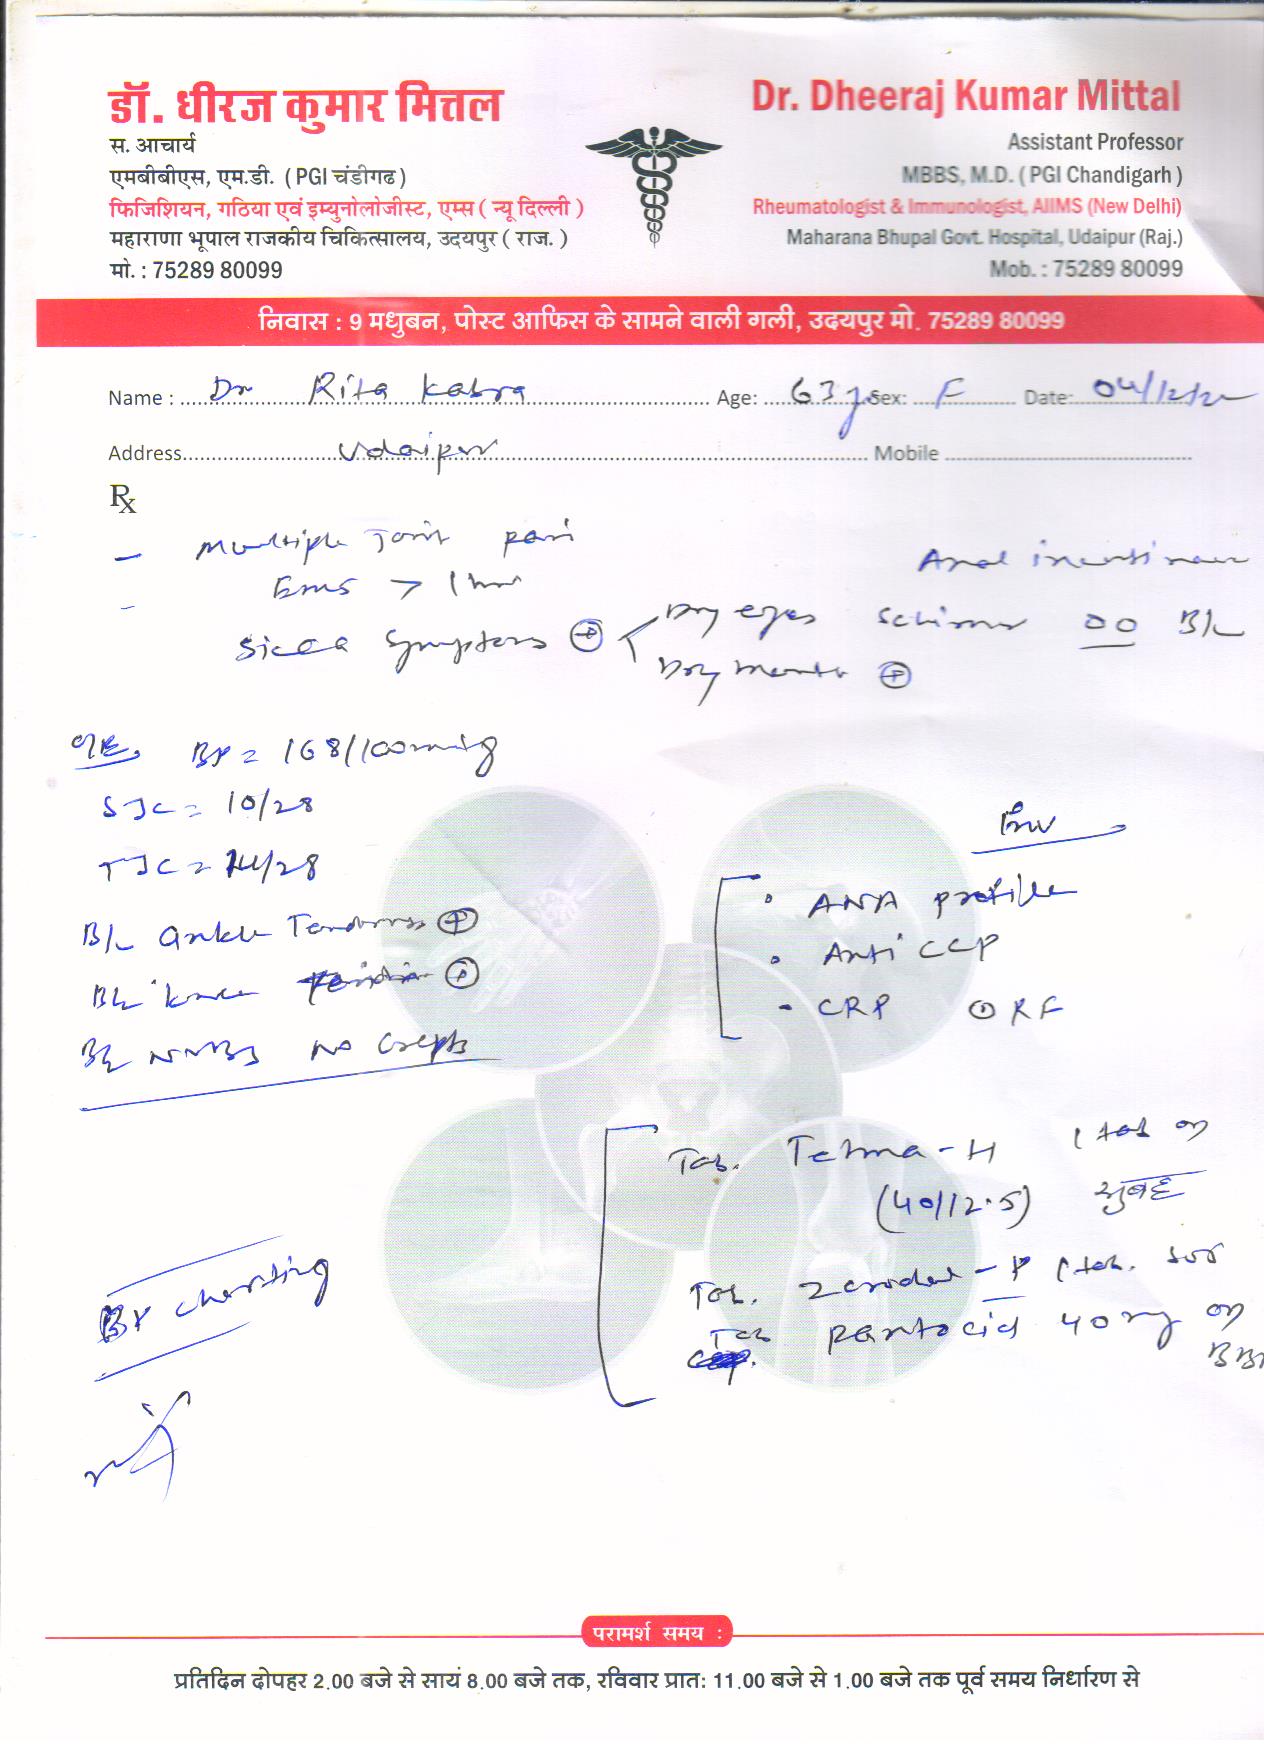 डॉ. धीरज कुमार मित्तल
स. आचार्य
एमबीबीएस, एम.डी. ( PGI चंडीगढ )
फिजिशियन, गठिया एवं इम्युनोलोजीस्ट, एम्स ( न्यू दिल्ली )
महाराणा भूपाल राजकीय चिकित्सालय, उदयपुर ( राज. )
मो. : 75289 80099
Dr. Dheeraj Kumar Mittal
Assistant Professor
MBBS, M.D. ( PGI Chandigarh )
Rheumatologist & Immunologist, AIIMS (New Delhi)
Maharana Bhupal Govt. Hospital, Udaipur (Raj.)
Mob. : 75289 80099
निवास : 9 मधुबन, पोस्ट आफिस के सामने वाली गली, उदयपुर मो. 75289 80099
Name : Dr Rita Kabra Age: 63 Sex: F Date: 04/12/22
Address Udaipur Mobile
Rx
- Multiple Joint pain
EMS > 1 hr
Anal incontinence
- Sicca symptoms + Dry eyes Schirmer 00 B/L
Dry mouth +
O/E. BP = 168/100 mmHg
SJC = 10/28
TJC = 14/28
B/L ankle Tenderness +
B/L knee +
B/L NVBS no crepts
Inv
• ANA profile
• Anti CCP
- CRP RF
Tab. Telma-H 1 tab OD
(40/12.5) सुबह
Tab. Zerodol-P 1 tab. SOS
Tab Pantocid 40 mg OD
BBF
BP charting
परामर्श समय :
प्रतिदिन दोपहर 2.00 बजे से सायं 8.00 बजे तक, रविवार प्रात: 11.00 बजे से 1.00 बजे तक पूर्व समय निर्धारण से